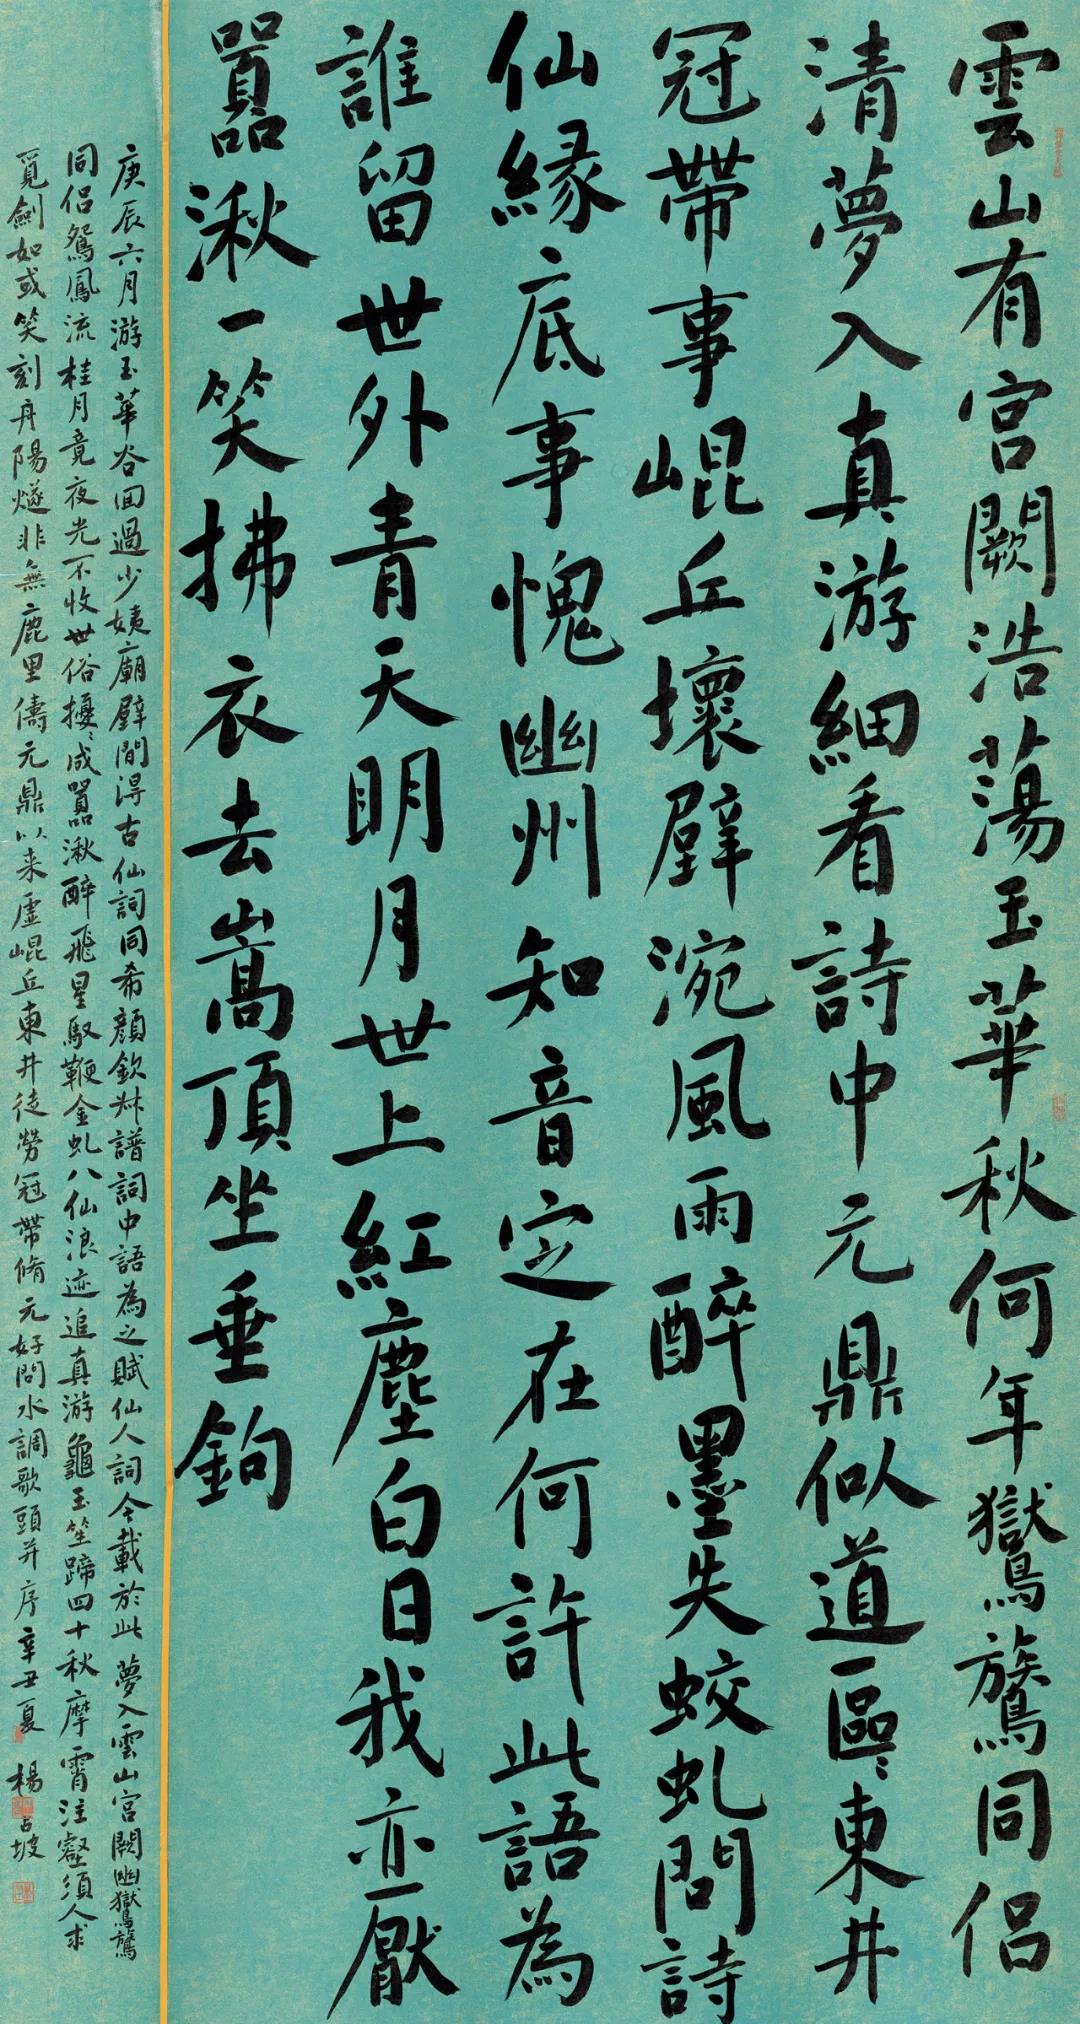 雲山有宮闕浩蕩玉華秋何年鸑鷟同侶
清夢入真游細看詩中元鼎似道區區東井
冠帶事崐丘壞壁涴風雨醉墨失蛟虬問詩
仙緣底事愧幽州知音定在何許此語為
誰留世外青天明月世上紅塵白日我亦厭
囂湫一笑拂衣去嵩頂坐垂鉤
庚辰六月游玉華谷回過少姨廟壁間得古仙詞同希顏欽叔譜詞中語為之賦仙人詞今載於此 夢入雲山宮闕幽鸑鷟
同侶鴛鳳流桂月竟夜光不收世俗擾擾成囂湫醉飛星馭鞭金虬八仙浪迹追真游龜玉笙蹄四十秋摩霄注壑須人求
覓劍如或笑刻舟陽燧非無鹿里儔元鼎以来虛崐丘東井徒勞冠帶脩元好問水調歌頭并序辛丑夏 楊占坡